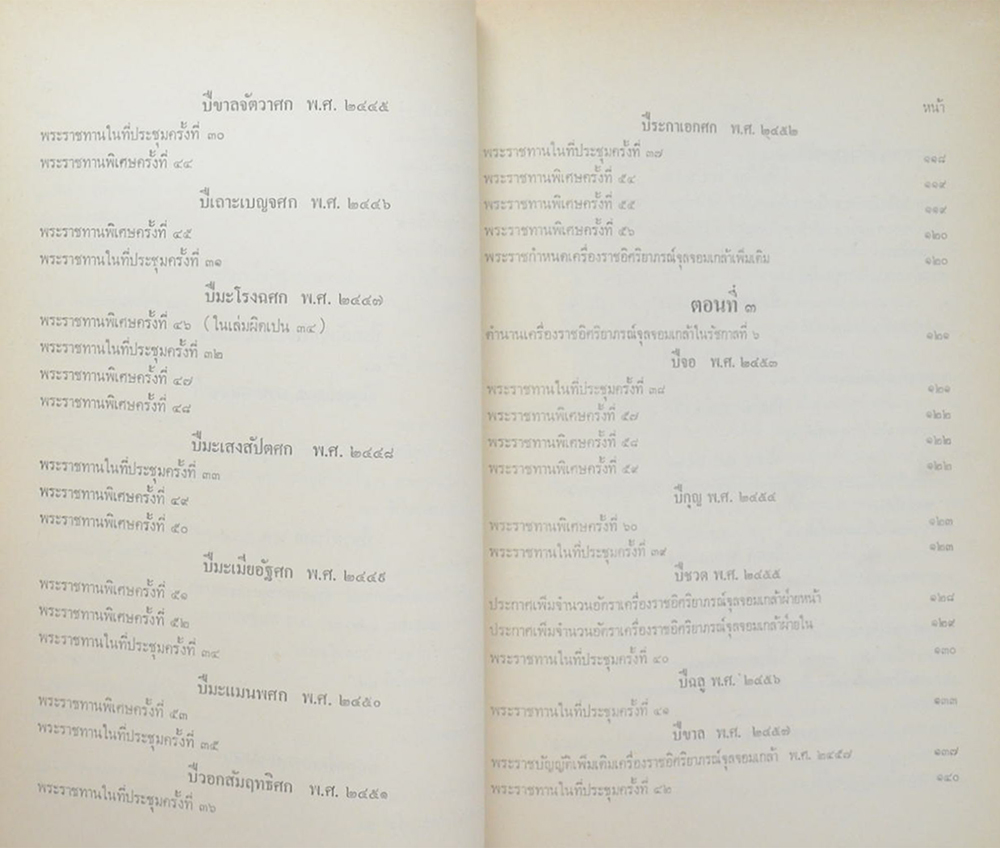 ปีขาลจัตวาศก พ.ศ. ๒๔๔๕
พระราชทานในที่ประชุมครั้งที่ ๓๐
พระราชทานพิเศษครั้งที่ ๔๔
ปีเถาะเบญจศก พ.ศ. ๒๔๔๖
พระราชทานพิเศษครั้งที่ ๔๕
พระราชทานในที่ประชุมครั้งที่ ๓๑
ปีมะโรงฉศก พ.ศ. ๒๔๔๗
พระราชทานพิเศษครั้งที่ ๔๖ (ในเล่มผิดเปน ๓๔)
พระราชทานในที่ประชุมครั้งที่ ๓๒
พระราชทานพิเศษครั้งที่ ๔๗
พระราชทานพิเศษครั้งที่ ๔๘
ปีมะเสงสัปตศก พ.ศ. ๒๔๔๘
พระราชทานในที่ประชุมครั้งที่ ๓๓
พระราชทานพิเศษครั้งที่ ๔๙
พระราชทานพิเศษครั้งที่ ๕๐
ปีมะเมียอัฐศก พ.ศ. ๒๔๔๙
พระราชทานพิเศษครั้งที่ ๕๑
พระราชทานพิเศษครั้งที่ ๕๒
พระราชทานในที่ประชุมครั้งที่ ๓๔
ปีมะแมนพศก พ.ศ. ๒๔๕๐
พระราชทานพิเศษครั้งที่ ๕๓
พระราชทานในที่ประชุมครั้งที่ ๓๕
ปีวอกสัมฤทธิศก พ.ศ. ๒๔๕๑
พระราชทานในที่ประชุมครั้งที่ ๓๖
หน้า
ปีระกาเอกศก พ.ศ. ๒๔๕๒
พระราชทานในที่ประชุมครั้งที่ ๓๗ ๑๑๘
พระราชทานพิเศษครั้งที่ ๕๔ ๑๑๙
พระราชทานพิเศษครั้งที่ ๕๕ ๑๑๙
พระราชทานพิเศษครั้งที่ ๕๖ ๑๒๐
พระราชกำหนดเครื่องราชอิศริยาภรณ์จุลจอมเกล้าเพิ่มเติม ๑๒๐
ตอนที่ ๓
ตำนานเครื่องราชอิศริยาภรณ์จุลจอมเกล้าในรัชกาลที่ ๖ ๑๒๑
ปีจอ พ.ศ. ๒๔๕๓
พระราชทานในที่ประชุมครั้งที่ ๓๘ ๑๒๑
พระราชทานพิเศษครั้งที่ ๕๗ ๑๒๒
พระราชทานพิเศษครั้งที่ ๕๘ ๑๒๒
พระราชทานพิเศษครั้งที่ ๕๙ ๑๒๒
ปีกุญ พ.ศ. ๒๔๕๔
พระราชทานพิเศษครั้งที่ ๖๐ ๑๒๓
พระราชทานในที่ประชุมครั้งที่ ๓๙ ๑๒๓
ปีชวด พ.ศ. ๒๔๕๕
ประกาศเพิ่มจำนวนอัตราเครื่องราชอิศริยาภรณ์จุลจอมเกล้าฝ่ายหน้า ๑๒๘
ประกาศเพิ่มจำนวนอัตราเครื่องราชอิศริยาภรณ์จุลจอมเกล้าฝ่ายใน ๑๒๙
พระราชทานในที่ประชุมครั้งที่ ๔๐ ๑๓๐
ปีฉลู พ.ศ. ๒๔๕๖
พระราชทานในที่ประชุมครั้งที่ ๔๑ ๑๓๓
ปีขาล พ.ศ. ๒๔๕๗
พระราชบัญญัติเพิ่มเติมเครื่องราชอิศริยาภรณ์จุลจอมเกล้า พ.ศ. ๒๔๕๗ ๑๓๗
พระราชทานในที่ประชุมครั้งที่ ๔๒ ๑๔๐